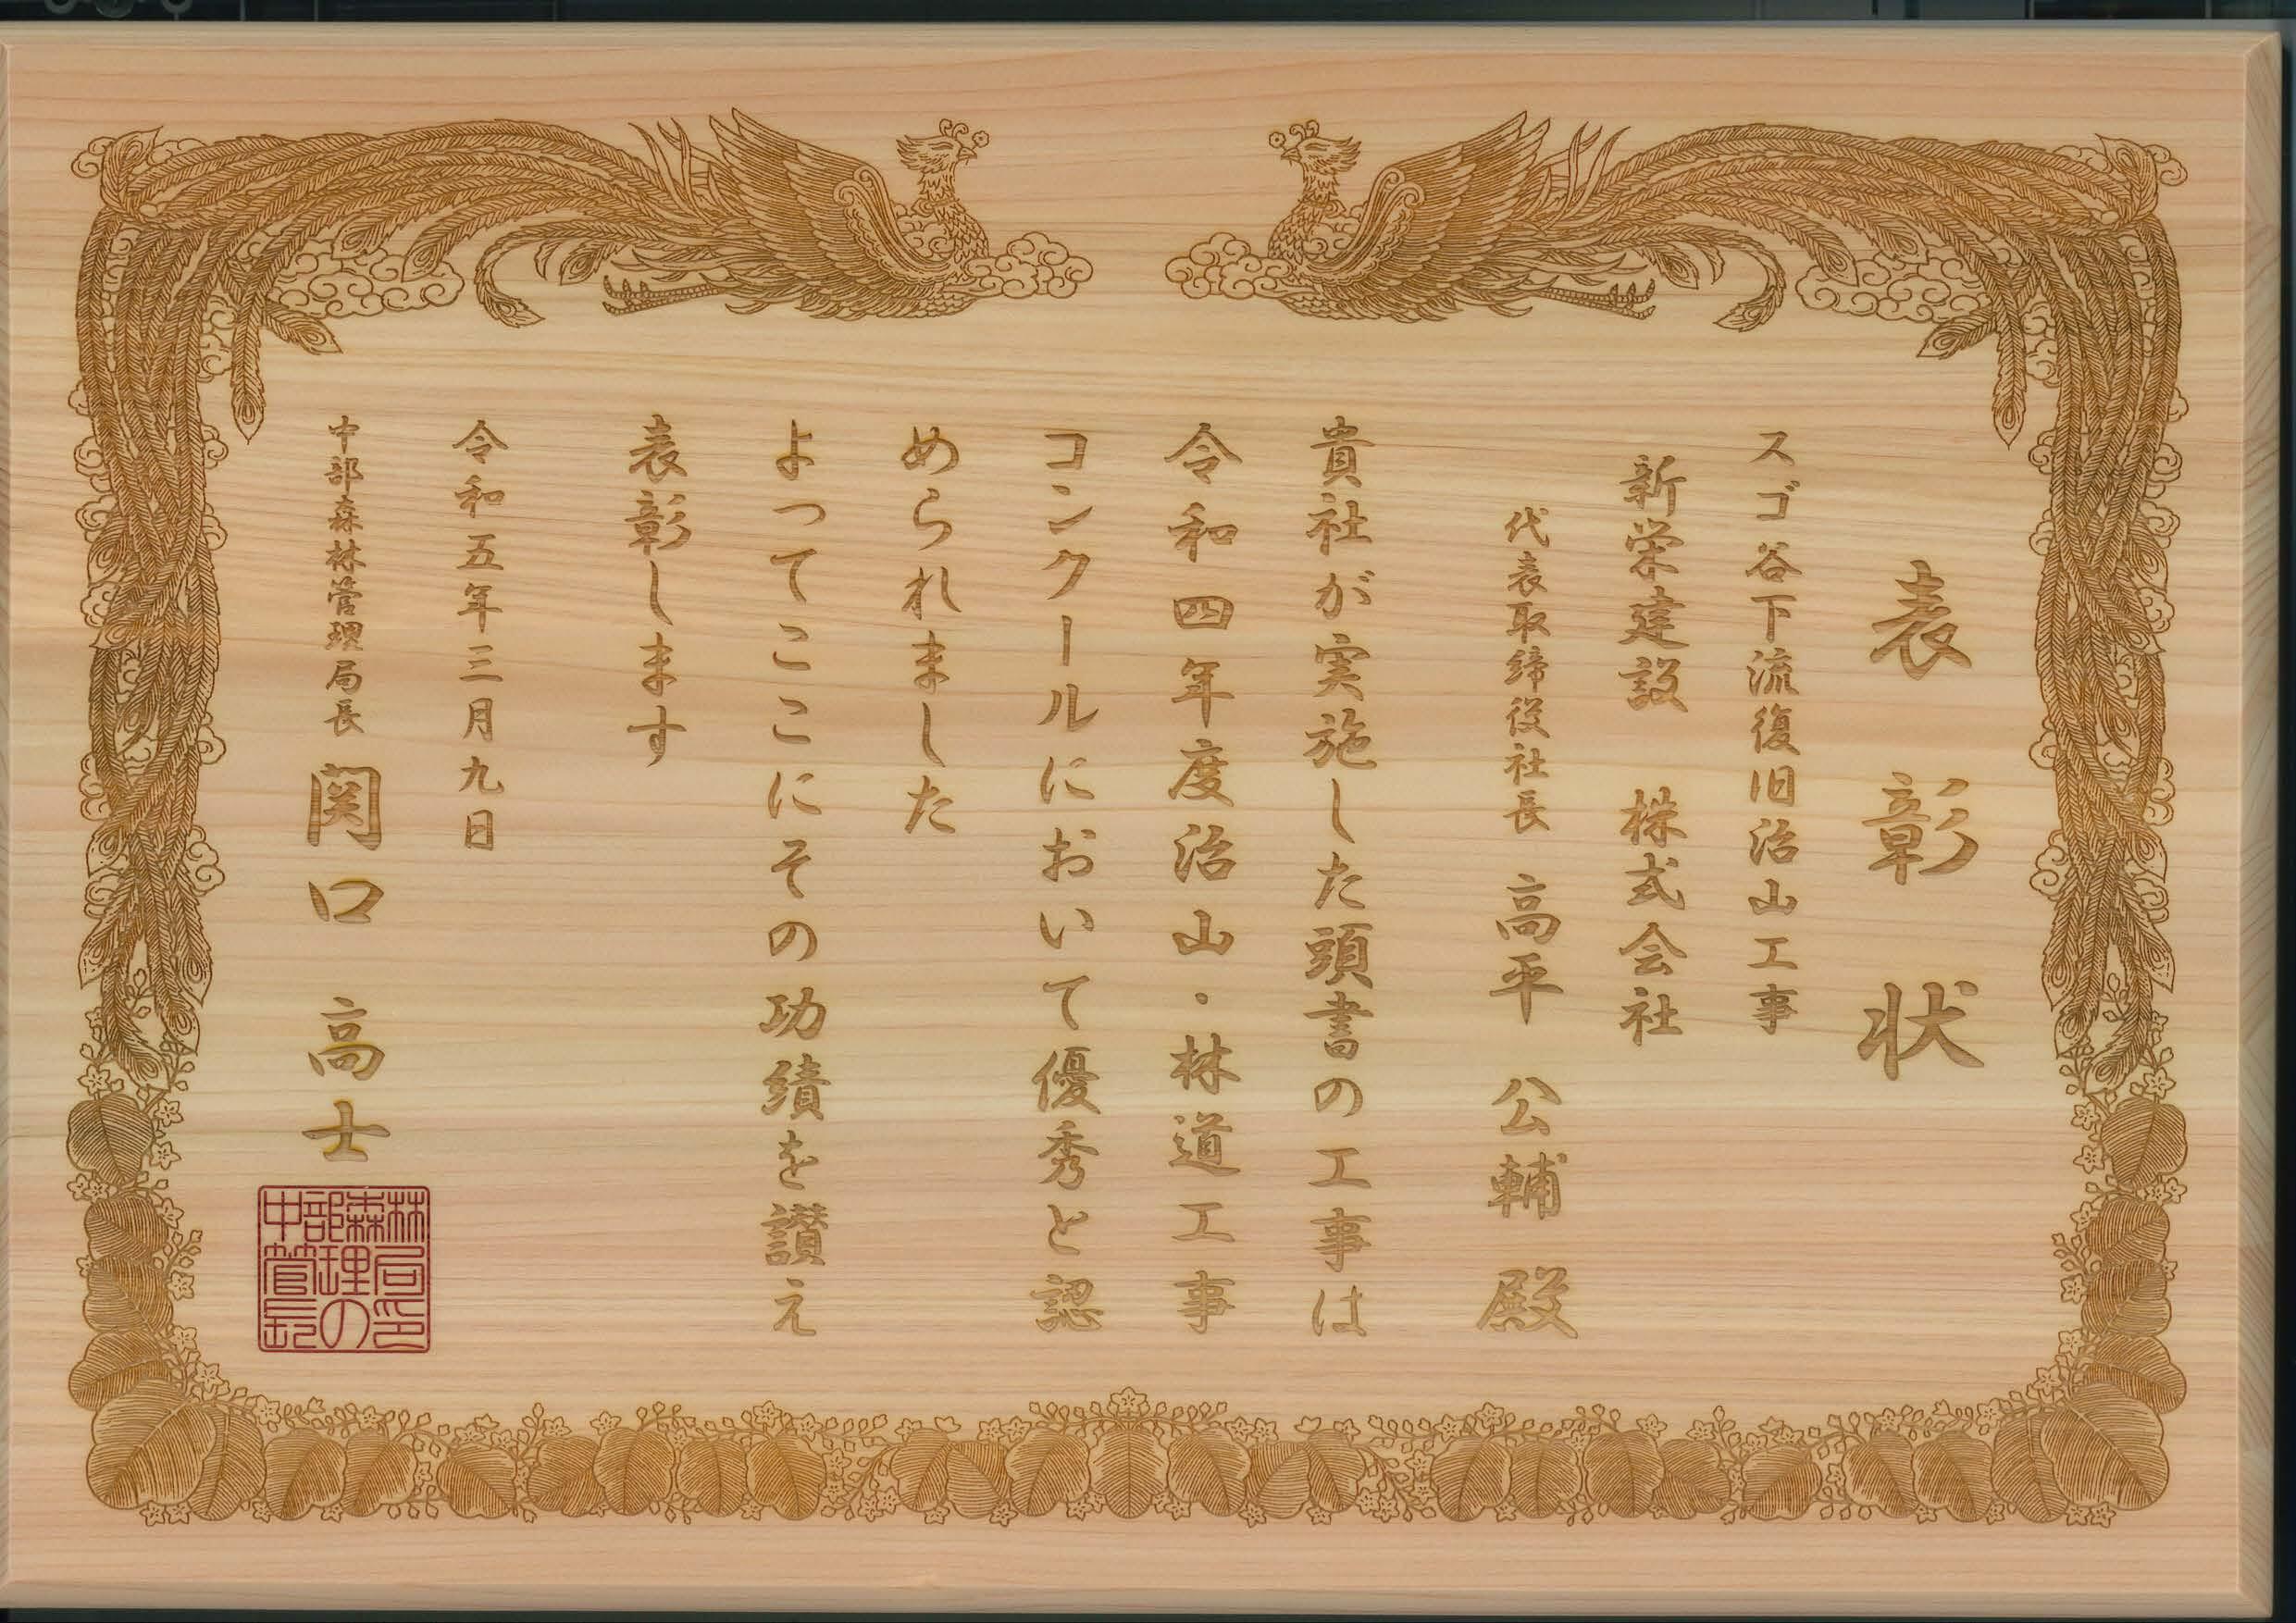 表彰状
スゴ谷下流復旧治山工事
新栄建設　株式会社
代表取締役社長　高平　公輔　殿
貴社が実施した頭書の工事は
令和四年度治山・林道工事
コンクールにおいて優秀と認
められました
よってここにその功績を讃え
表彰します
令和五年三月九日
中部森林管理局長　関口　高士
中部森林
管理局
長の印